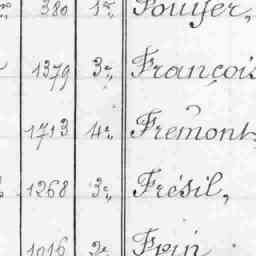 380 1e,
1379 3e, François
1713 4e, Fremont,
1268 3e, Frésil,
1016 2e,